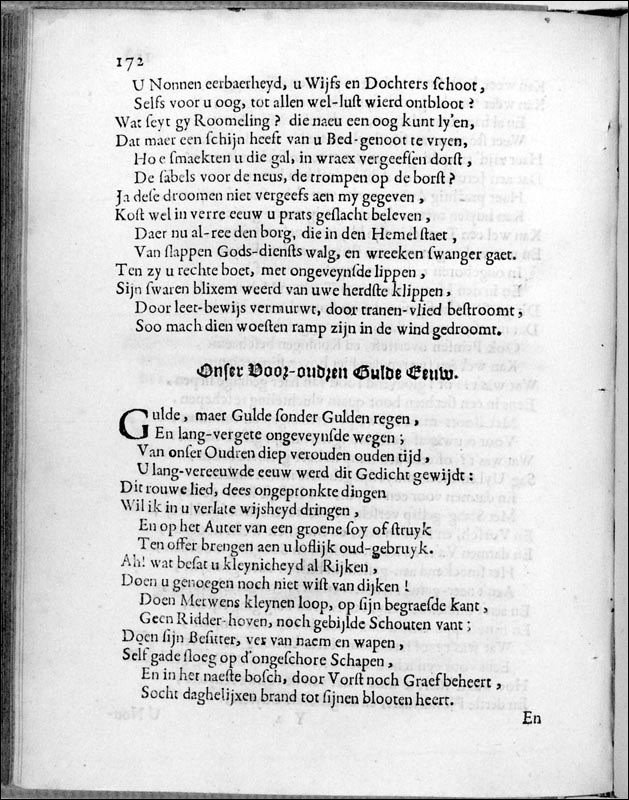 172
U Nonnen eerbaerheyd, u Wijfs en Dochters schoot,
Selfs voor u oog, tot allen wel-lust wierd ontbloot?
Wat seyt gy Roomeling? die naeu een oog kunt ly'en,
Dat maer een schijn heeft van u Bed-genoot te vryen,
Hoe smaekten u die gal, in wraex vergeefsen dorst,
De sabels voor de neus, de trompen op de borst?
Ja dese droomen niet vergeefs aen my gegeven,
Kost wel in verre eeuw u prats geslacht beleven,
Daer nu al-ree den borg, die in den Hemel staet,
Van slappen Gods-diensts walg, en wreeken swanger gaet.
Ten zy u rechte boet, met ongeveynsde lippen,
Sijn swaren blixem weerd van uwe herdste klippen,
Door leet-bewijs vermurwt, door tranen-vlied bestroomt,
Soo mach dien woesten ramp zijn in de wind gedroomt.
Onser Voor-oudren Gulde Eeuw.
Gulde, maer Gulde sonder Gulden regen,
En lang-vergete ongeveynsde wegen;
Van onser Oudren diep verouden ouden tijd,
U lang-vereeuwde eeuw werd dit Gedicht gewijdt:
Dit rouwe lied, dees ongepronkte dingen
Wil ik in u verlate wijsheyd dringen,
En op het Auter van een groene soy of struyk
Ten offer brengen aen u loflijk oud-gebruyk.
Ah! wat besat u kleynicheyd al Rijken,
Doen u genoegen noch niet wist van dijken!
Doen Merwens kleynen loop, op sijn begraesde kant,
Geen Ridder-hoven, noch gebijlde Schouten vant;
Doen sijn Besitter, ver van naem en wapen,
Self gade sloeg op d'ongeschore Schapen,
En in het naeste bosch, door Vorst noch Graef beheert,
Socht daghelijxen brand tot sijnen blooten heert.
En